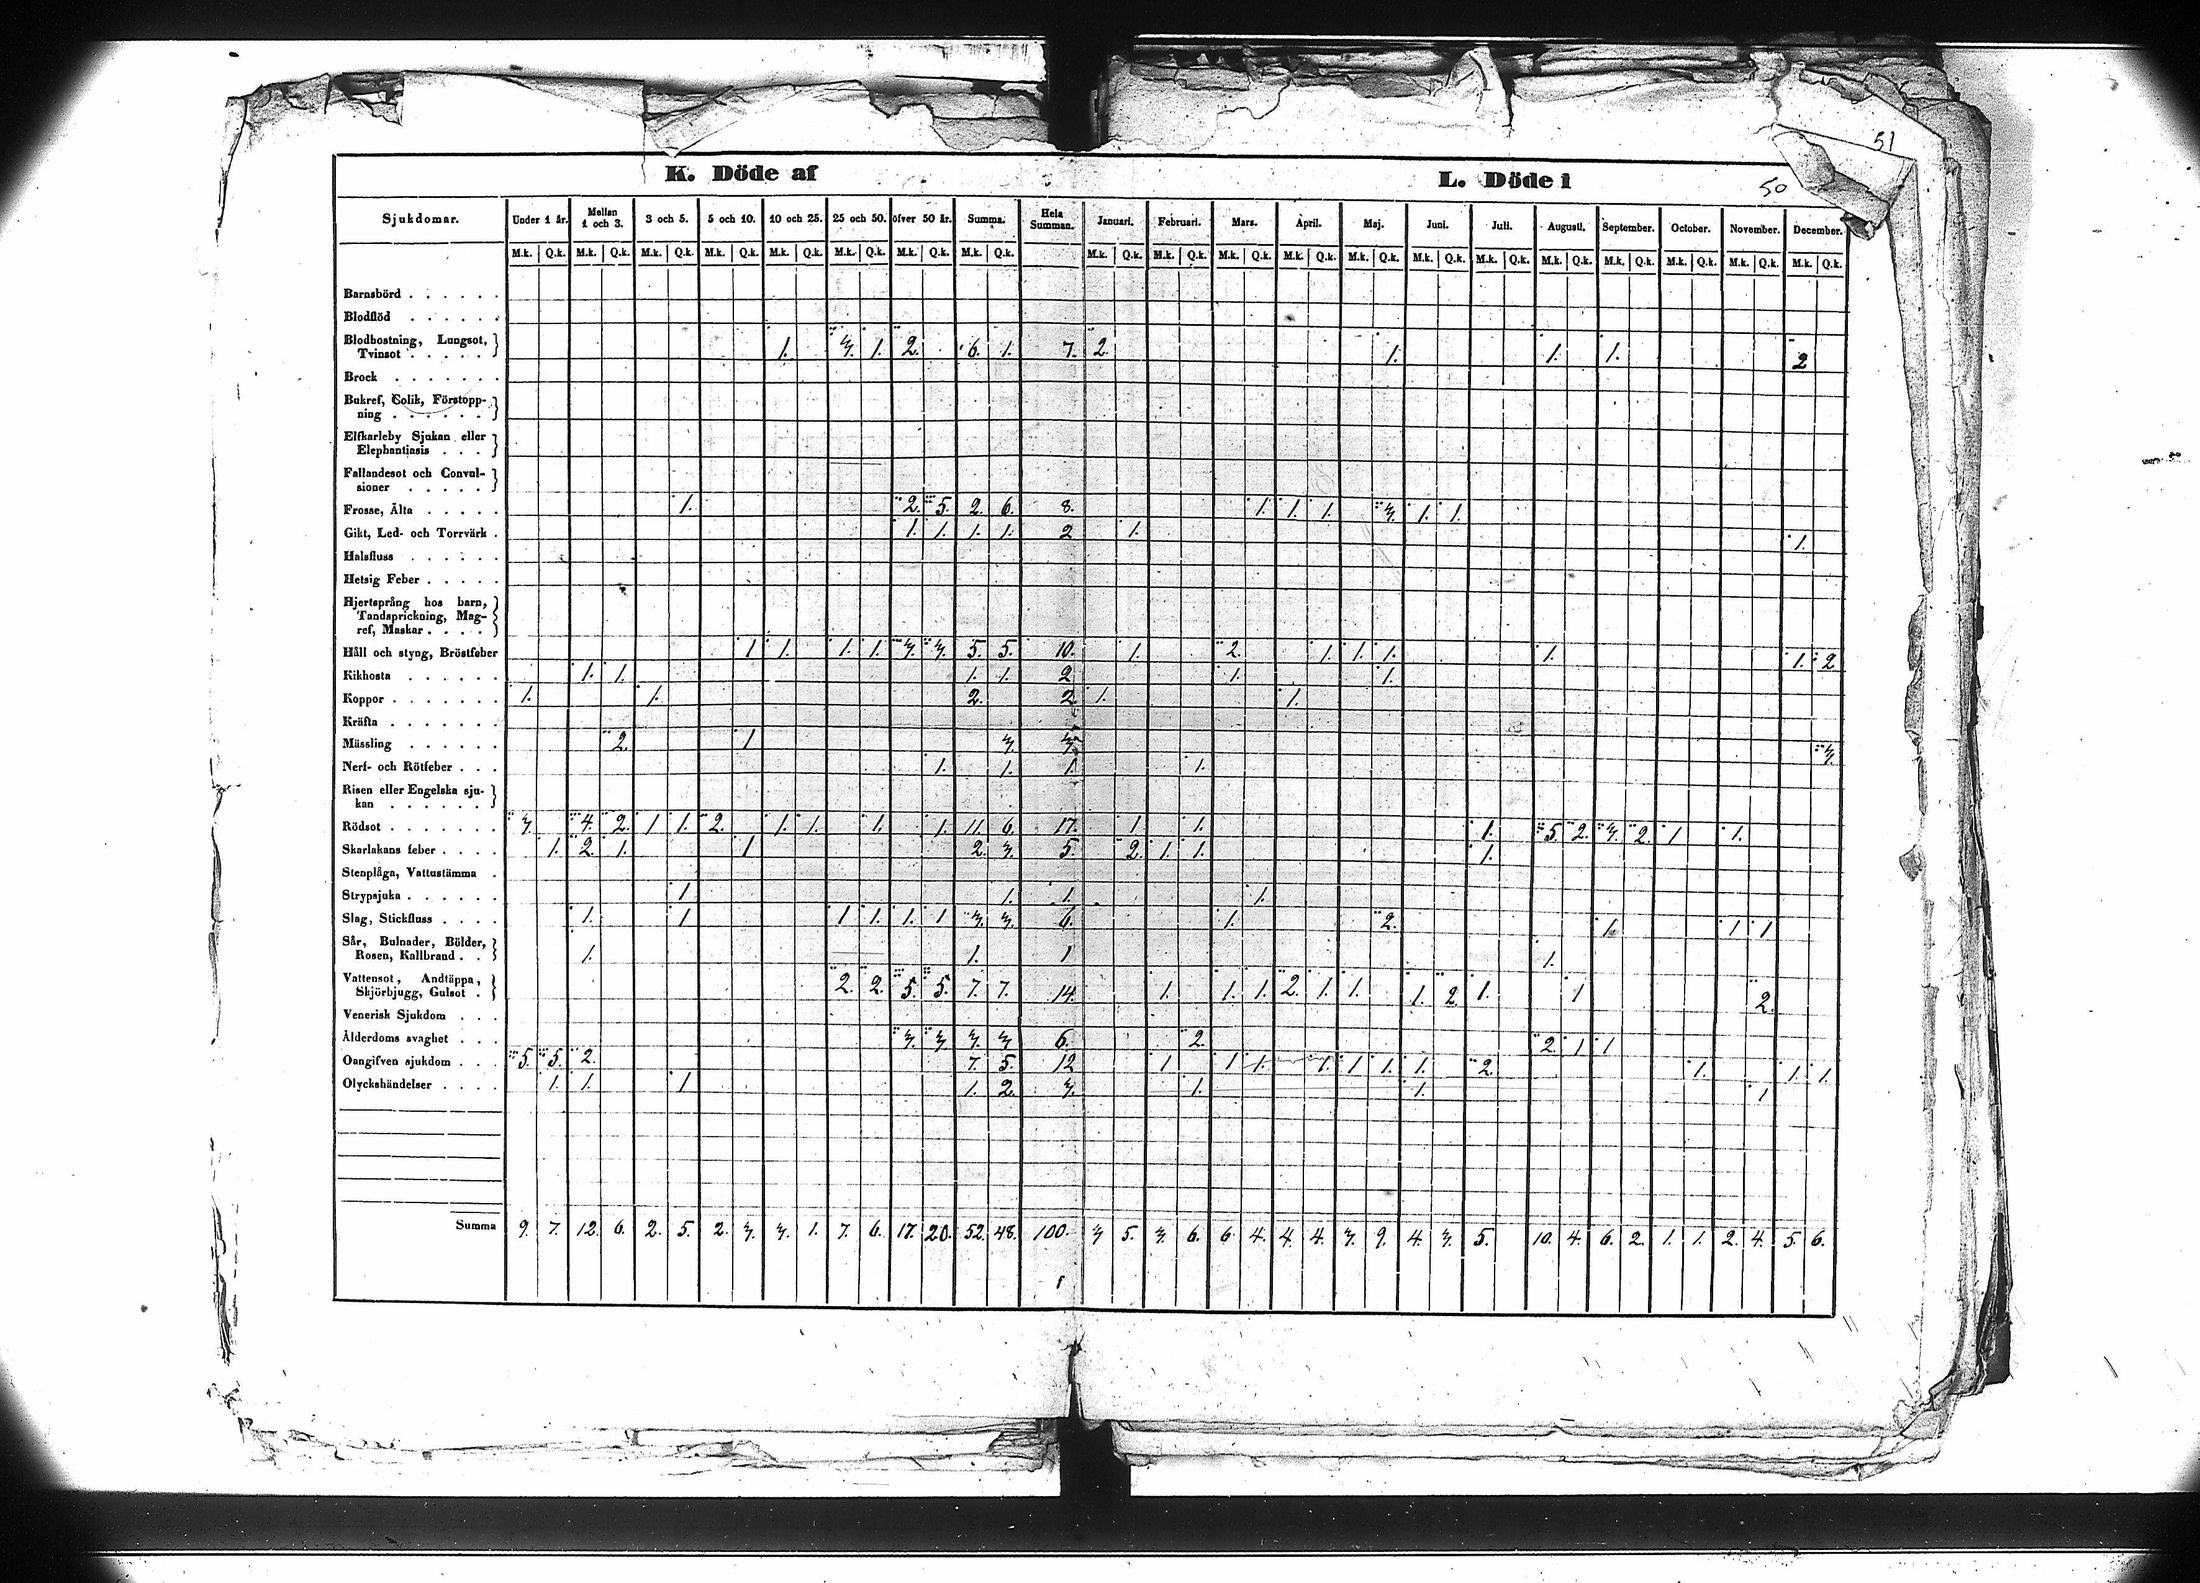 51
50
K. Döde af
L. Döde i
Sjukdomar. Under 1 år. Mellan 1 och 3. 3 och 5. 5 och 10. 10 och 25. 25 och 50. öfver 50 år. Summa. Hela Summan. Januari. Februari. Mars. April. Maj. Juni. Juli. Augusti. September. October. November. December.
M.k. Q.k. M.k. Q.k. M.k. Q.k. M.k. Q.k. M.k. Q.k. M.k. Q.k. M.k. Q.k. M.k. Q.k. M.k. Q.k. M.k. Q.k. M.k. Q.k. M.k. Q.k. M.k. Q.k. M.k. Q.k. M.k. Q.k. M.k. Q.k. M.k. Q.k. M.k. Q.k. M.k. Q.k. M.k. Q.k.
Barnsbörd . . . . . .
Blodflöd . . . . . .
Blodhostning, Lungsot,
Tvinsot . . . . . 1. 3. 1. 2. 6. 1. 7. 2. 1. 1. 1. 2
Brock . . . . . . .
Bukref, Colik, Förstopp-
ning . . . . . .
Elfkarleby Sjukan eller
Elephantiasis . . .
Fallandesot och Convul-
sioner . . . . .
Frosse, Älta . . . . . 1. 2. 5. 2. 6. 8. 1. 1. 1. 3. 1. 1.
Gikt, Led- och Torrvärk . 1. 1. 1. 1. 2 1. 1.
Halsfluss . . . . . .
Hetsig Feber . . . . .
Hjertsprång hos barn,
Tandsprickning, Mag-
ref, Maskar . . . .
Håll och styng, Bröstfeber 1 1. 1. 1. 3. 3. 5. 5. 10. 1. 2. 1. 1. 1. 1. 1. 2
Kikhosta . . . . . . 1. 1. 1. 1. 2 1. 1.
Koppor . . . . . . . 1. 1. 2. 2 1. 1.
Kräfta . . . . . . .
Mässling . . . . . . 2. 1 3. 3. 3.
Nerf- och Rötfeber . . . 1. 1. 1. 1.
Risen eller Engelska sju-
kan . . . . . .
Rödsot . . . . . . . 3. 4. 2. 1 1. 2. 1. 1. 1. 1. 11. 6. 17. 1 1. 1. 5. 2. 3. 2. 1 1.
Skarlakans feber . . . . 1. 2. 1. 1 2. 3. 5. 2. 1. 1. 1.
Stenplåga, Vattustämma .
Strypsjuka . . . . . . 1 1. 1. 1.
Slag, Stickfluss . . . . 1. 1 1 1. 1. 1 3. 3. 6. 1. 2. 1. 1 1
Sår, Bulnader, Bölder,
Rosen, Kallbrand . . 1. 1. 1 1.
Vattensot, Andtäppa,
Skjörbjugg, Gulsot . 2. 2. 5. 5. 7. 7. 14. 1. 1. 1. 2. 1. 1. 1. 2 1. 1 2.
Venerisk Sjukdom . . .
Ålderdoms svaghet . . . 3. 3. 3. 3 6. 2. 2 1 1
Oangifven sjukdom . . . 5. 5. 2. 7. 5. 12 1 1 1. 1. 1 1. 1. 2. 1. 1 1.
Olyckshändelser . . . . 1. 1. 1 1. 2. 3. 1. 1. 1
Summa 9. 7. 12. 6. 2. 5. 2. 3. 3. 1. 7. 6. 17. 20. 52. 48. 100. 3 5. 3. 6. 6. 4. 4. 4. 3. 9. 4. 3. 5. 10. 4. 6. 2. 1. 1. 2. 4. 5. 6.